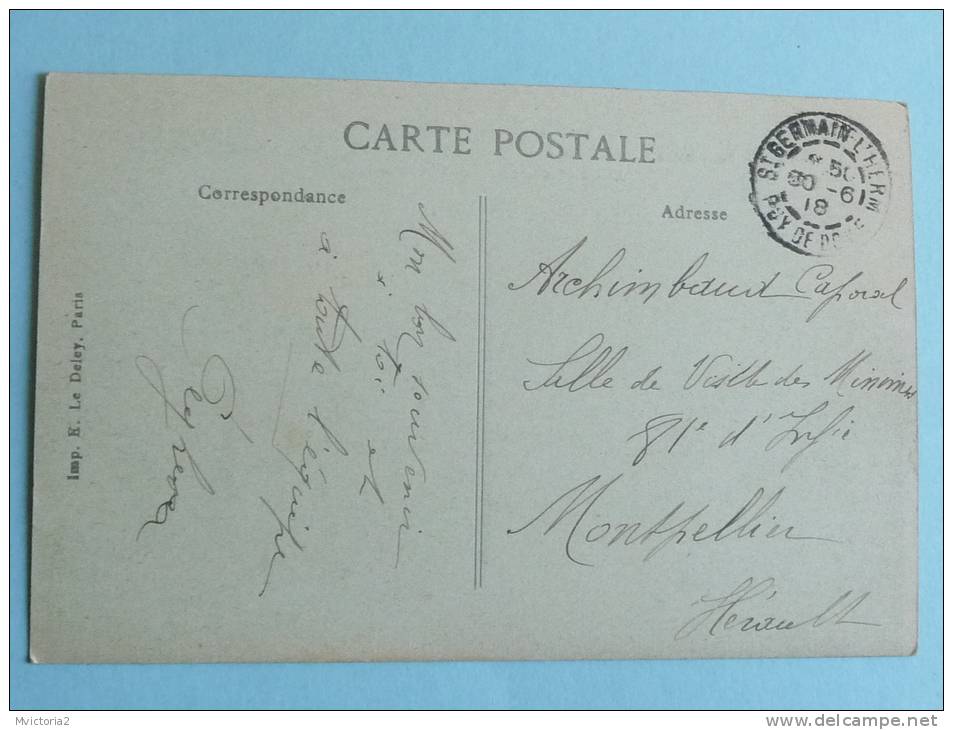 CARTE POSTALE
Correspondance
Adresse
Imp. E. Le Deley, Paris
Mon bon souvenir
à toi et
à toute l'équipe
ST GERMAIN-L'HERM
* 50
30 -6
18
PUY DE DOME
Archimbaud Caporal
Salle de Visite des Minimes
81e d'Infie
Montpellier
Hérault
Mvictoria2
www.delcampe.net